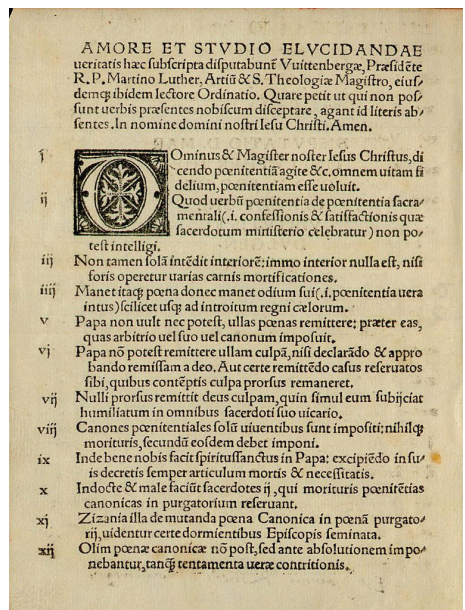 AMORE ET STVDIO ELVCIDANDAE
ueritatis hæc subscripta disputabunť Vuittenbergæ, Præsidēte
R. P. Martino Luther, Artiū & S. Theologiæ Magistro, eius⸗
demq̃ ibidem lectore Ordinatio. Quare petit ut qui non pos⸗
sunt uerbis præsentes nobiscum disceptare, agant id literis ab⸗
sentes. In nomine domini nostri Iesu Christi. Amen.
i DOminus & Magister noster Iesus Christus, di
cendo pœnitentiā agite &c. omnem uitam fi
delium, pœnitentiam esse uoluit.
ij Quod uerbū pœnitentia de pœnitentia sacra⸗
mentali (.i. confessionis & satisfactionis quæ
sacerdotum ministerio celebratur) non po⸗
test intelligi.
iij Non tamen solā intēdit interiorē: immo interior nulla est, nisi
foris operetur uarias carnis mortificationes.
iiij Manet itaq̃ pœna donec manet odium sui (.i. pœnitentia uera
intus) scilicet usq̃ ad introitum regni cælorum.
v Papa non uult nec potest, ullas pœnas remittere: præter eas,
quas arbitrio uel suo uel canonum imposuit.
vj Papa nō potest remittere ullam culpā, nisi declarādo & appro
bando remissam a deo. Aut certe remittēdo casus reseruatos
sibi, quibus contēptis culpa prorsus remaneret.
vij Nulli prorsus remittit deus culpam, quin simul eum subijciat
humiliatum in omnibus sacerdoti suo uicario.
viij Canones pœnitentiales solū uiuentibus sunt impositi: nihilq̃
morituris, secundū eosdem debet imponi.
ix Inde bene nobis facit spiritussanctus in Papa: excipiēdo in su⸗
is decretis semper articulum mortis & necessitatis.
x Indocte & male faciūt sacerdotes ij, qui morituris pœnitētias
canonicas in purgatorium reseruant.
xj Zizania illa de mutanda pœna Canonica in pœnā purgato⸗
rij, uidentur certe dormientibus Episcopis seminata.
xij Olim pœnæ canonicæ nō post, sed ante absolutionem impo⸗
nebantur, tanq̃ tentamenta ueræ contritionis.